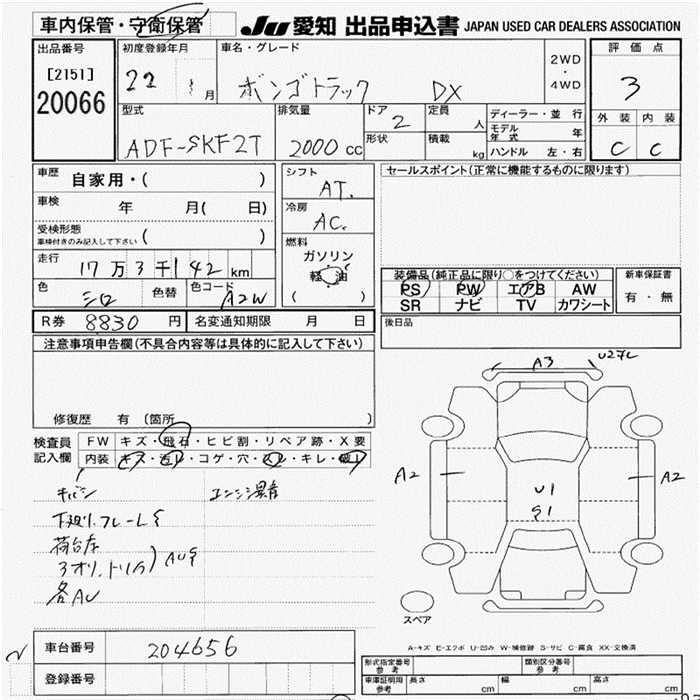 車内保管・守衛保管
JU 愛知 出品申込書 JAPAN USED CAR DEALERS ASSOCIATION
出品番号
[2151]
20066
初度登録年月
22 月
車名・グレード
ボンゴトラック DX
2WD
・
4WD
評価点
3
外装 内装
C C
型式
ADF-SKF2T
排気量
2000 cc
ドア
2
形状
定員
人
積載
kg
ディーラー・並行
モデル年式 年
ハンドル 左・右
車歴 自家用・( )
車検 年 月( 日)
受検形態
車検付きのみ記入して下さい ( )
走行 17万3千142 km
色 シロ 色替 色コード A2W
シフト
AT.
冷房
AC.
燃料
ガソリン
軽油
( )
セールスポイント(正常に機能するものに限ります)
装備品(純正品に限り○をつけてください)
PS PW エアB AW
SR ナビ TV カワシート
新車保証書
有・無
R券 8830 円 名変通知期限 月 日
後日品
注意事項申告欄(不具合内容等は具体的に記入して下さい)
修復歴 有 (箇所 )
検査員
記入欄
FW キズ・飛石・ヒビ割・リペア跡・X要
内装 キズ・汚レ・コゲ・穴・スレ・キレ・破レ
キバン
エンジン異音
下廻リ.フレームS
荷台床
3オリ.トリイ) AUS
各AU
A3
U27L
A2
A2
U1
S1
スペア
A-キズ E-エクボ U-凹み W-補修跡 S-サビ C-腐食 XX-交換済
車台番号 204656
登録番号
形式指定番号
参考
類別区分番号
参考
車庫証明用
参考
長さ cm 幅 cm 高さ cm